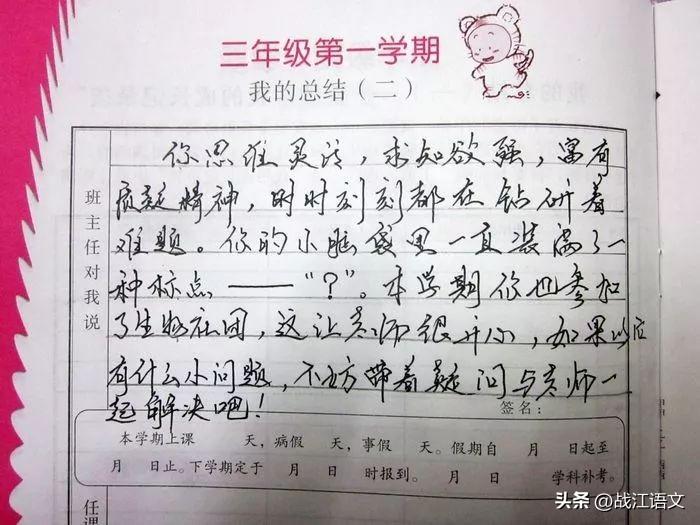 三年级第一学期
我的总结（二）
班主任对我说
你思维灵活，求知欲强，富有
质疑精神，时时刻刻都在钻研着
难题。你的小脑袋里一直装满了一
种标点——“？”。本学期你也参加
了生物社团，这让老师很开心，如果以后
有什么小问题，不妨带着疑问与老师一
起解决吧！
签名：
本学期上课 天，病假 天，事假 天。假期自 月 日起至
月 日止。下学期定于 月 日 时报到。 月 日 学科补考。
任课
头条 @战江语文